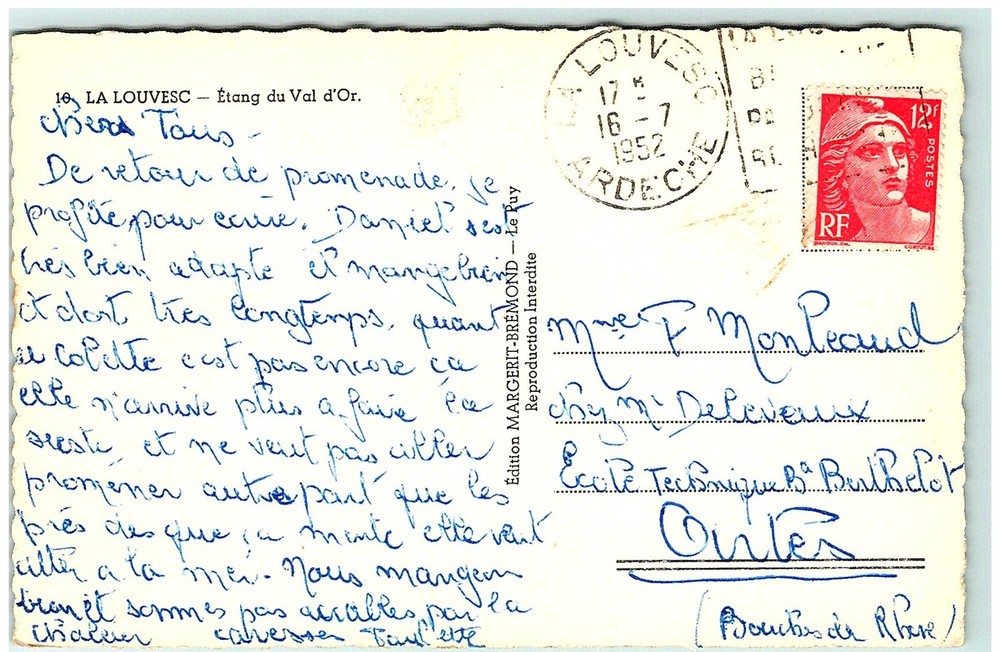 10. LA LOUVESC — Étang du Val d'Or.
Chers Tous -
De retour de promenade, je
profite pour écrire. Daniel s'est
très bien adapté et mange bien
et dort très longtemps, quant
a Colette c'est pas encore ça
elle n'arrive plus a faire la
sieste et ne veut pas aller
promener autre part que les
près des que ça monte elle veut
aller a la mer. Nous mangeon
bien et sommes pas accablés par la
chaleur caresses
Édition MARGERIT-BRÉMOND — Le Puy
Reproduction Interdite
LA LOUVESC
17
16 - 7
1952
ARDECHE
12F
POSTES
RF
Mme F Monteaud
chez Mr Deleveaux
École Technique Bd Berthelot
(Bouches du Rhône)